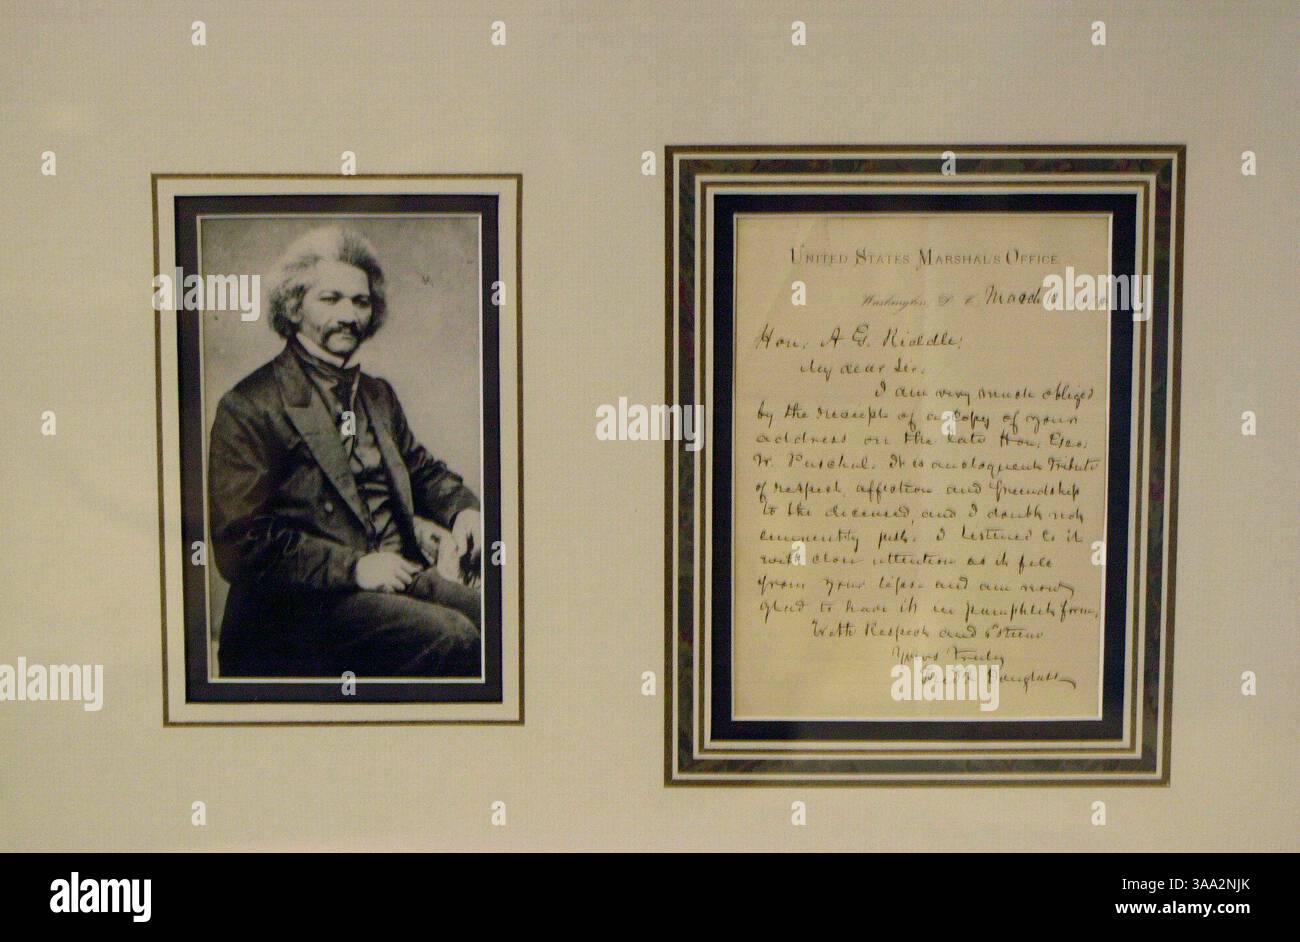 UNITED STATES MARSHAL'S OFFICE
Washington, D. C. March
Hon. A G. Riddle;
My dear Sir;
I am very much obliged
by the receipt of a copy of your
address on the late Hon. Geo.
W. Paschal. It is an eloquent tribute
of respect, affection and friendship
to the deceased, and I doubt not
eminently just. I listened to it
with close attention as it fell
from your lips and am now
glad to have it in pamphlet form.
With Respect and Esteem
Yours Truly
Fredk Douglass
alamy
alamy
Image ID: 3AA2NJK
www.alamy.com